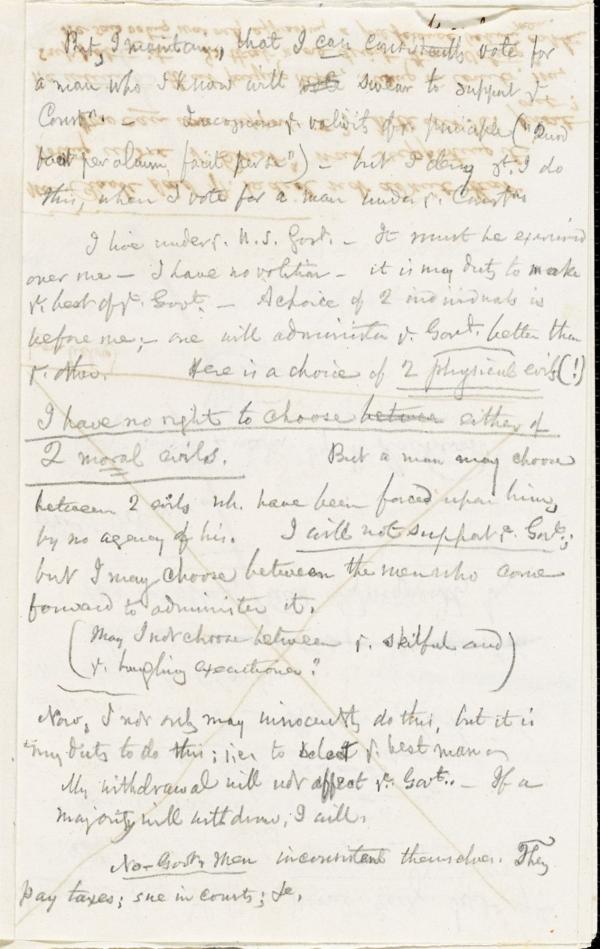 But, I maintain, that I can consistently vote for
a man who I know will swear to support yᵉ
Constⁿ. — I recognise yᵉ validity of yᵉ principle ("Quod
facit per alium, facit per se") — but I deny yᵗ I do
this, when I vote for a man under yᵉ Constⁿ
I live under yᵉ U.S. Govt. — It must be exercised
over me — I have no volition — it is my duty to make
yᵉ best of yᵉ Govt. — A choice of 2 individuals is
before me; — one will administer yᵉ Govt. better than
yᵉ other. Here is a choice of 2 physical evils (!)
I have no right to choose between either of
2 moral evils. But a man may choose
between 2 evils wh. have been forced upon him,
by no agency of his. I will not support yᵉ Govt.;
but I may choose between the men who come
forward to administer it.
(May I not choose between yᵉ skilful and
yᵉ bungling executioner?)
Now, I not only may innocently do this, but it is
my duty to do this; i.e. to select yᵉ best man
My withdrawal will not affect yᵉ Govt. — If a
majority will withdraw, I will.
No-Govt. Men inconsistent themselves. They
pay taxes; sue in courts; &c.